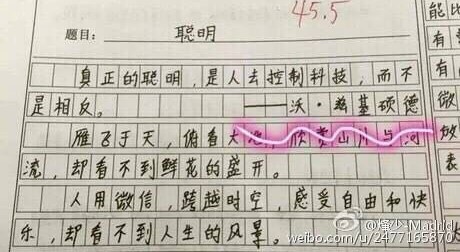 45.5
题目： 聪明
真正的聪明，是人去控制科技，而不
是相反。 ——沃·兹基硕德
雁飞于天，俯看大地，欣赏山川与河
流，却看不到鲜花的盛开。
人用微信，跨越时空，感受自由和快
乐，却看不到人生的风景。
能比
有
微
放
表
@烽少-Madrid
weibo.com/u/2477165870